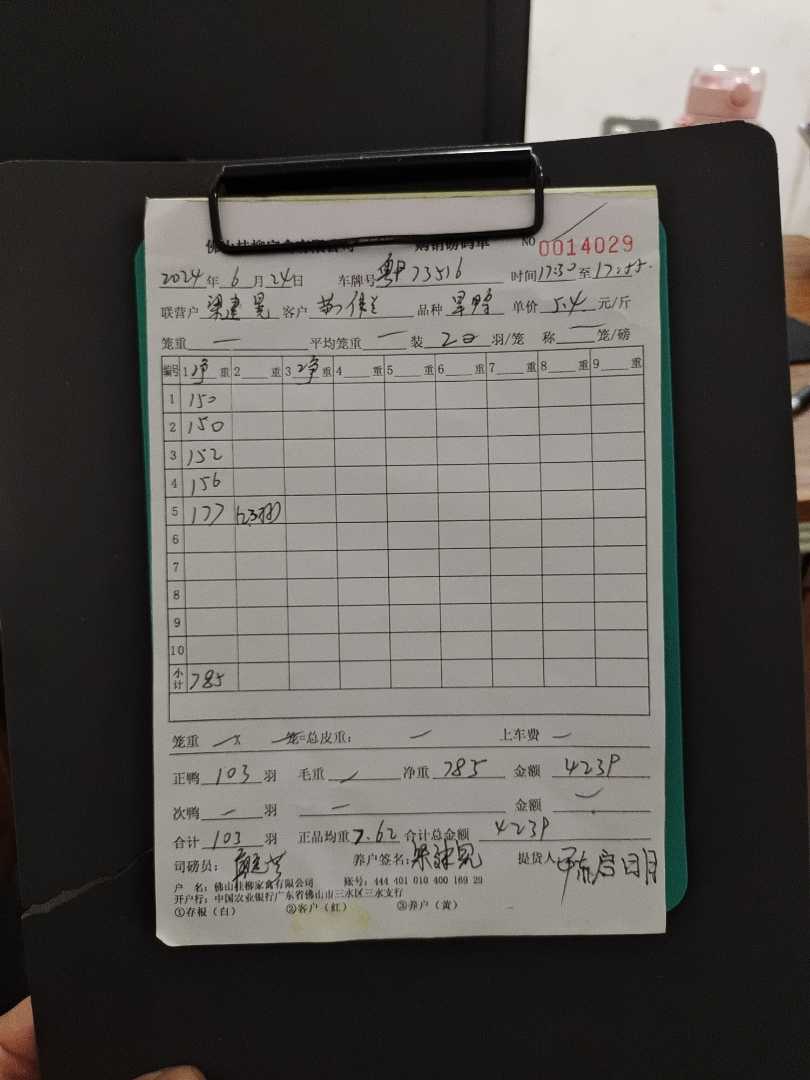 佛山桂柳家禽有限公司 购销磅码单 NO 0014029
2024年6月24日 车牌号 粤P73516 时间17:30至17:55.
联营户 梁建冕 客户 品种 单价 5.4 元/斤
笼重 — 平均笼重 — 装 20 羽/笼 称 — 笼/磅
编号 1净重 2 重 3净重 4 重 5 重 6 重 7 重 8 重 9 重
1 150
2 150
3 152
4 156
5 177 (23羽)
6
7
8
9
10
小计 785
笼重 x 笼=总皮重: — 上车费 —
正鸭 103 羽 毛重 净重 785 金额 4239
次鸭 — 羽 — 金额
合计 103 羽 正品均重 7.62 合计总金额 4239
司磅员: 养户签名: 提货人
户 名: 佛山桂柳家禽有限公司 账号: 444 401 010 400 169 29
开户行: 中国农业银行广东省佛山市三水区三水支行
①存根（白） ②客户（红） ③养户（黄）